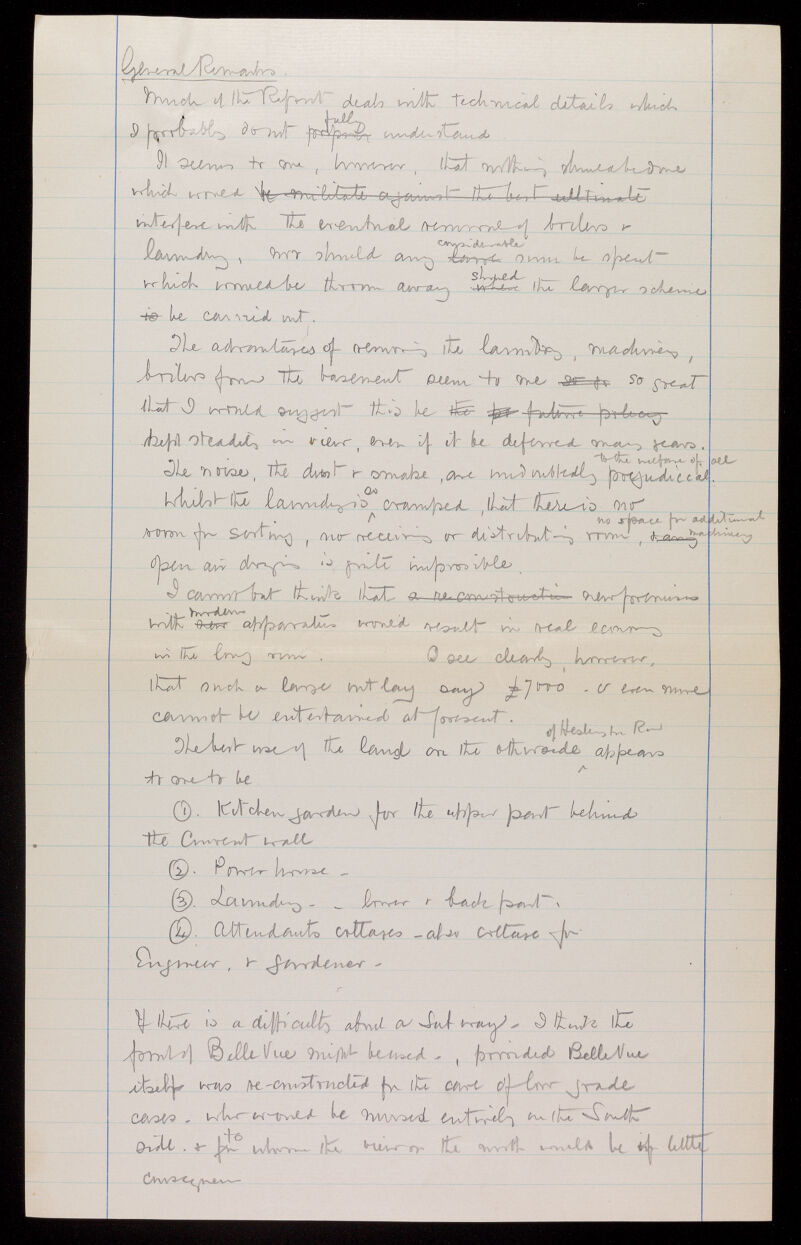 General Remarks.
Much of the Report deals with technical details which
I probably do not fully understand
It seems to me, however, that nothing should be done
which would be militate against the best ultimate
interfere with the eventual removal of boilers &
laundry, nor should any considerable large sum be spent
which would be thrown away should where the larger scheme
to be carried out.
The advantages of removing the laundry, machinery,
boilers from the basement seem to me so great
that I would suggest this be the future policy
kept steadily in view, even if it be deferred many years.
to the welfare of all
The noise, the dust & smoke, are undoubtedly prejudicial.
Whilst the laundry is so cramped, that there is no
no space for additional
room for sorting, no receiving or distributing room, machinery
open air drying is quite impossible.
I cannot but think that a reconstruction new premises
with modern new apparatus would result in real economy
in the long run. I see clearly, however,
that such a large outlay say £7000 - or even more
cannot be entertained at present.
of Heslington Rd
The best use of the land on the other side appears
to me to be
①. Kitchen garden for the upper part behind
the Current wall
②. Power house -
③. Laundry - - lower & back part.
④. Attendants cottages - also cottage for
Engineer, & gardener -
If there is a difficulty about a Subway - I think the
front of Belle Vue might be used -, provided Belle Vue
itself was re-constructed for the care of low grade
cases - who would be nursed entirely on the South
side. & for to whom the view on the north would be of little